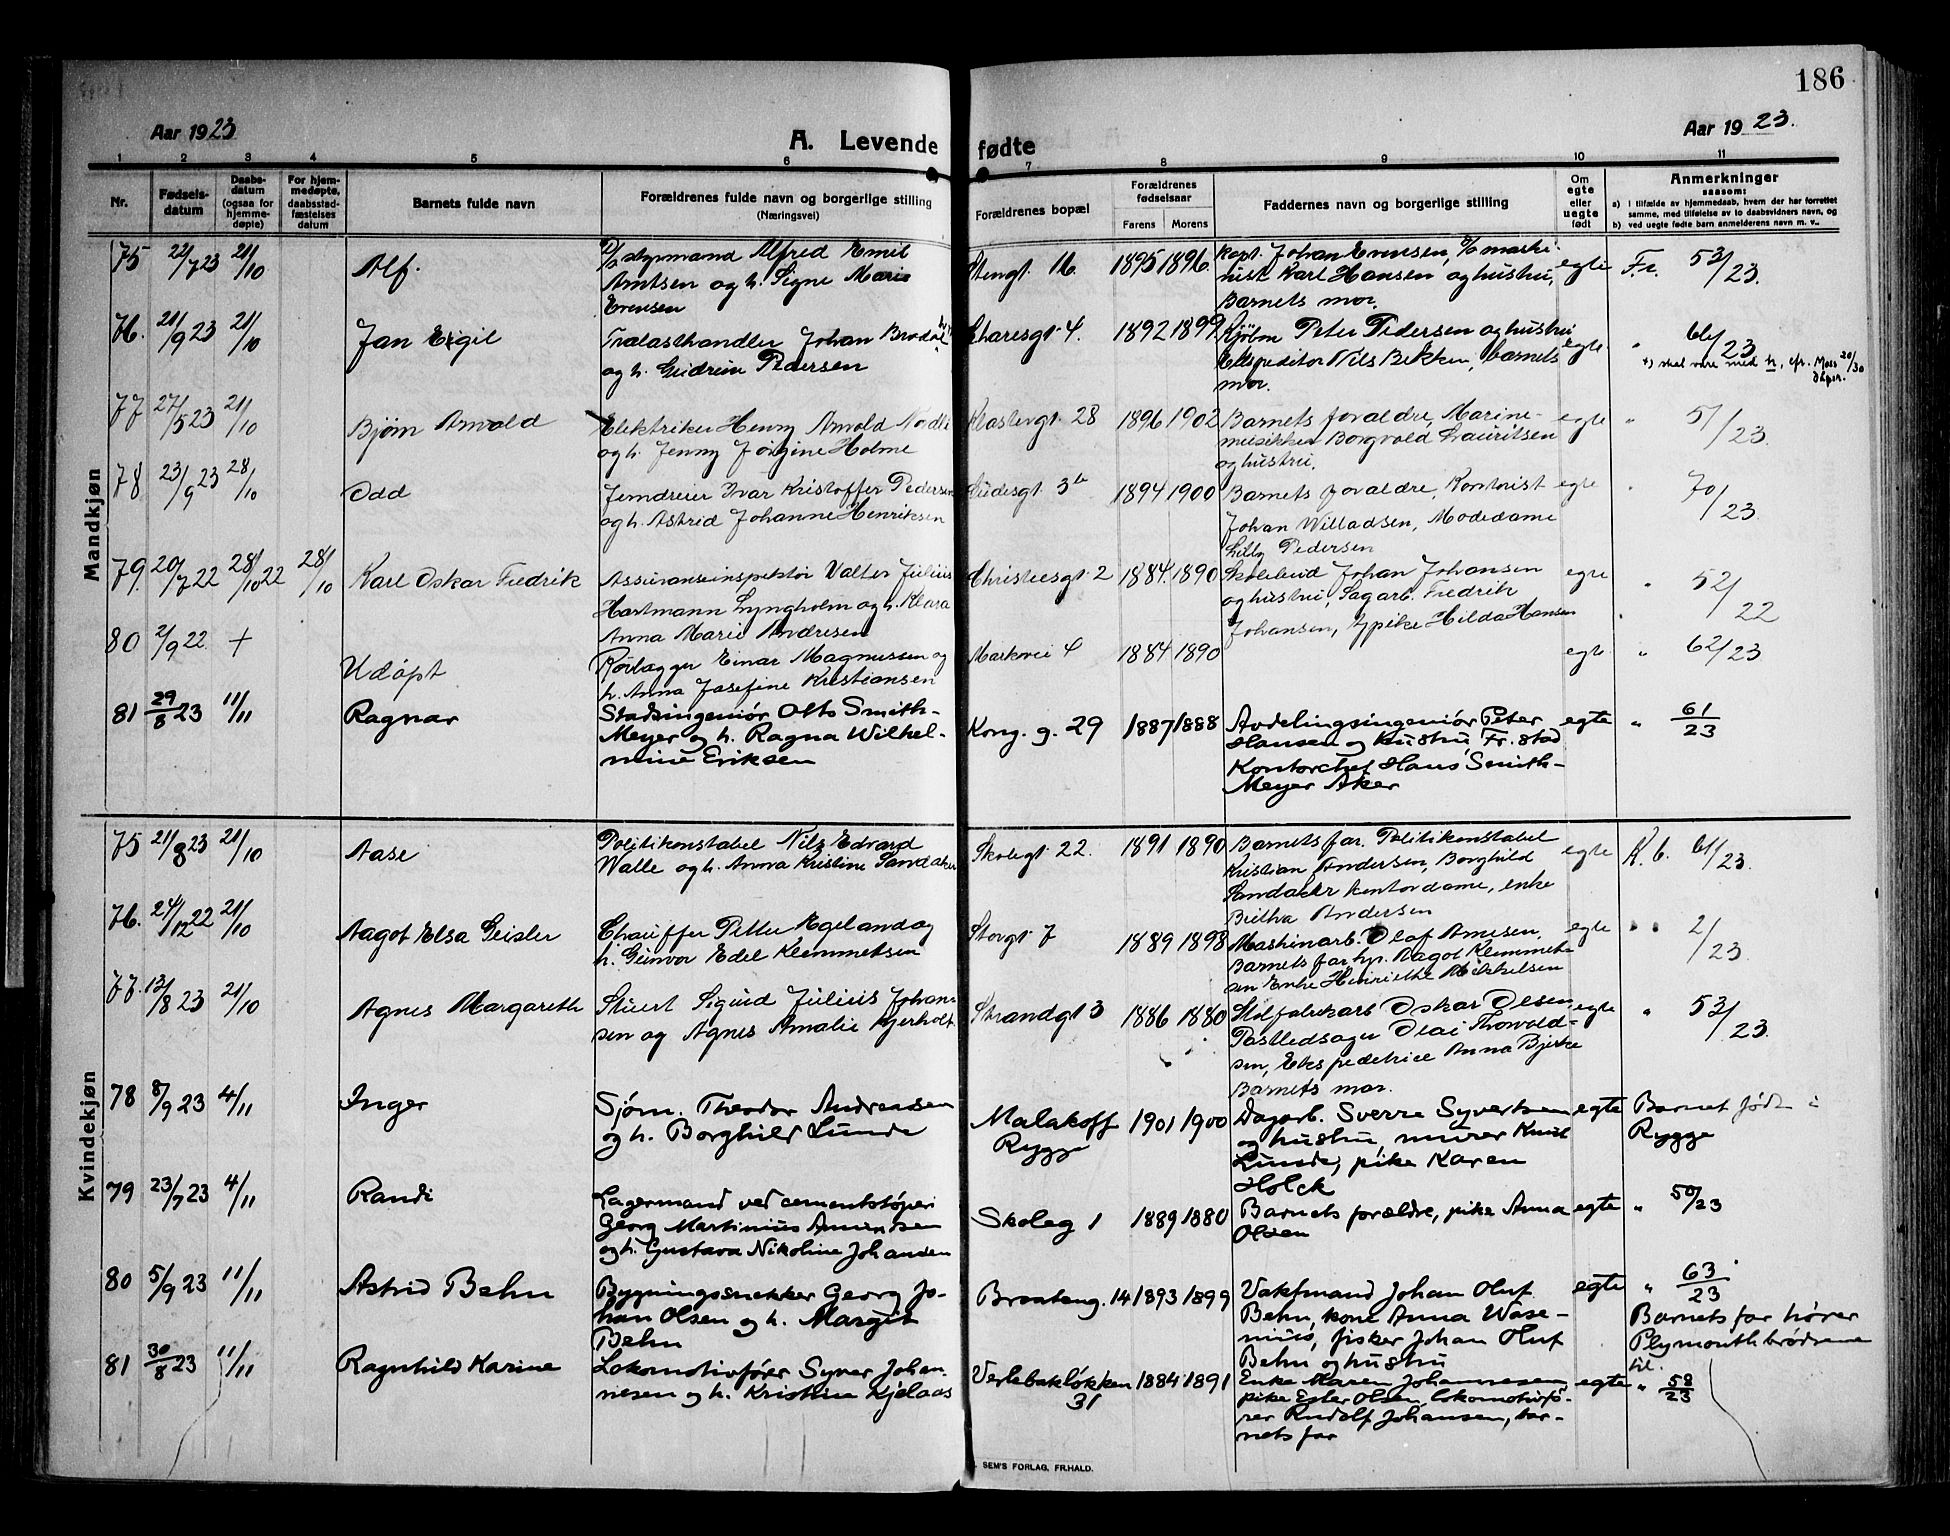 186
Aar 1923
A. Levende fødte
Aar 1923.
1 2 3 4 5 6 7 8 9 10 11
Nr.
Fødsels-
datum
Daabs-
datum
(ogsaa for
hjemme-
døpte)
For hjem-
medøpte,
daabsstad-
fæstelses
datum
Barnets fulde navn
Forældrenes fulde navn og borgerlige stilling
(Næringsvei)
Forældrenes bopæl
Forældrenes
fødselsaar
Farens Morens
Faddernes navn og borgerlige stilling
Om
egte
eller
uegte
født
Anmerkninger
saasom:
a) i tilfælde av hjemmedaab, hvem der har forrettet
samme, med tilføielse av to daabsvidners navn, og
b) ved uegte fødte barn anmelderens navn m. v..
Mandkjøn
75 22/7 23 21/10 Alf.
styrmand Alfred Emil
Arntsen og h. Signe Marie
Evensen
Stengt. 16. 1895 1896.
kapt. Johan Evensen,
Karl Hansen og hustru,
Barnets mor.
egte Fr. 53/23.
76. 21/9 23 21/10 Jan Eigil
Trælasthandler Johan Brodal
og h. Gudrun Pedersen
4. 1892 1899.
Peter Pedersen og hustru
Ekspeditor Nils Bekken, barnets
mor.
egte " 66/23
+) skal være med h, cfr. Moss 20/30
dhpr.
77 27/5 23 21/10 Bjørn Arnold
Elektriker Henry Arnold
og h. Jenny Jørgine Holme
Klostergt. 28 1896 1902
Barnets forældre, Marine-
musikker Borgvald Lauritsen
og hustru.
egte " 51/23.
78 23/9 23 28/10 Odd
Jerndreier Ivar Kristoffer Pedersen
og h. Astrid Johanne Henriksen
3b 1894 1900
Barnets forældre, Kontorist
Johan Willadsen, Modedame
Lilly Pedersen
egte " 70/23.
79. 20/7 22 28/10 22 28/10 Karl Oskar Fredrik
Assuranseinspektør Valter Julius
Hartmann Lyngholm og h. Klara
Anna Marie Andresen
Christiesgt. 2 1884. 1890
Skolebud Johan Johansen
og hustru, Sagarb. Fredrik
Johansen, Hilda Hansen
egte " 52/22
80 2/9 22 + Udøpt
Rørlægger Einar Magnussen og
h. Anna Josefine Kristiansen
Markvei 4 1884 1890
egte " 62/23
81 29/8 23 11/11 Ragnar
Stadsingeniør Otto Smith-
Meyer og h. Ragna Wilhel-
mine Eriksen
Kong. g. 29 1887 1888
Avdelingsingeniør Peter
Hansen og hustru, Fr.stad
Kontorchef Hans Smith-
Meyer Aker
egte " 61/23
Kvindekjøn
75 21/8 23 21/10 Aase
Politikonstabel Nils Edvard
Walle og h. Anna Kristine Sandaker
Skolegt. 22. 1891 1890
Barnets far. Politikonstabel
Kristian Andersen, Borghild
Sandaker kontordame, enke
Andersen
egte K. b. 61/23.
76. 24/12 22 21/10 Aagot Elsa Geisler
Chauffer Petter Egeland og
h. Gunvor Edel Klemmetsen
Storgt. 7 1889 1898
Maskinarb. Olaf Arnesen,
Barnets far hp. Aagot Klemmet-
sen Enke Henriette Mikkelsen
egte " " 2/23
77. 12/8 23 21/10 Agnes Margareth
Stuert Sigurd Julius Johan-
sen og Agnes Amalie Gjerholt
Strandgt 3 1886 1880
Oskar Olsen,
Olai Thorvald-
sen, Ekspeditrice Anna Bjerke
Barnets mor.
egte " 53/23.
78 8/9 23 4/11 Inger
Sjøm. Theodor Andreassen
og h. Borghild Lunde
Malakoff
Rygge
1901 1900
Dagarb. Sverre Syvertsen
og hustru, murer Knut
Lunde, pike Karen
Holck
egte Barnet født i
Rygge
79 23/7 23 4/11 Randi
Lagermand ved cementstøperi
Georg Martinius Amundsen
og h. Gustava Nikoline Johansen
Skoleg 1 1889 1880
Barnets forældre, pike Anna
Olsen
egte " 50/23
80 5/9 23 11/11 Astrid Behn
Bygningssnekker Georg Jo-
han Olsen og h. Margit
Behn
Bråteng. 14 1893 1899
Vaktmand Johan Oluf
Behn, kone Anna Wase-
nius, fisker Johan Oluf
Behn og hustru
egte " 63/23
Barnets far hører
Plymouthbrødrene
til.
81 30/8 23 11/11 Ragnhild Karine
Lokomotivfører Syver Johan-
nesen og h. Kristine Kjølaas
Verlebakløkken
31
1884 1891
Enke Maren Johannesen
pike Ester Olsen, lokomotivfø-
rer Rudolf Johansen, bar-
nets far
egte " 58/23
SEM'S FORLAG, FR.HALD.